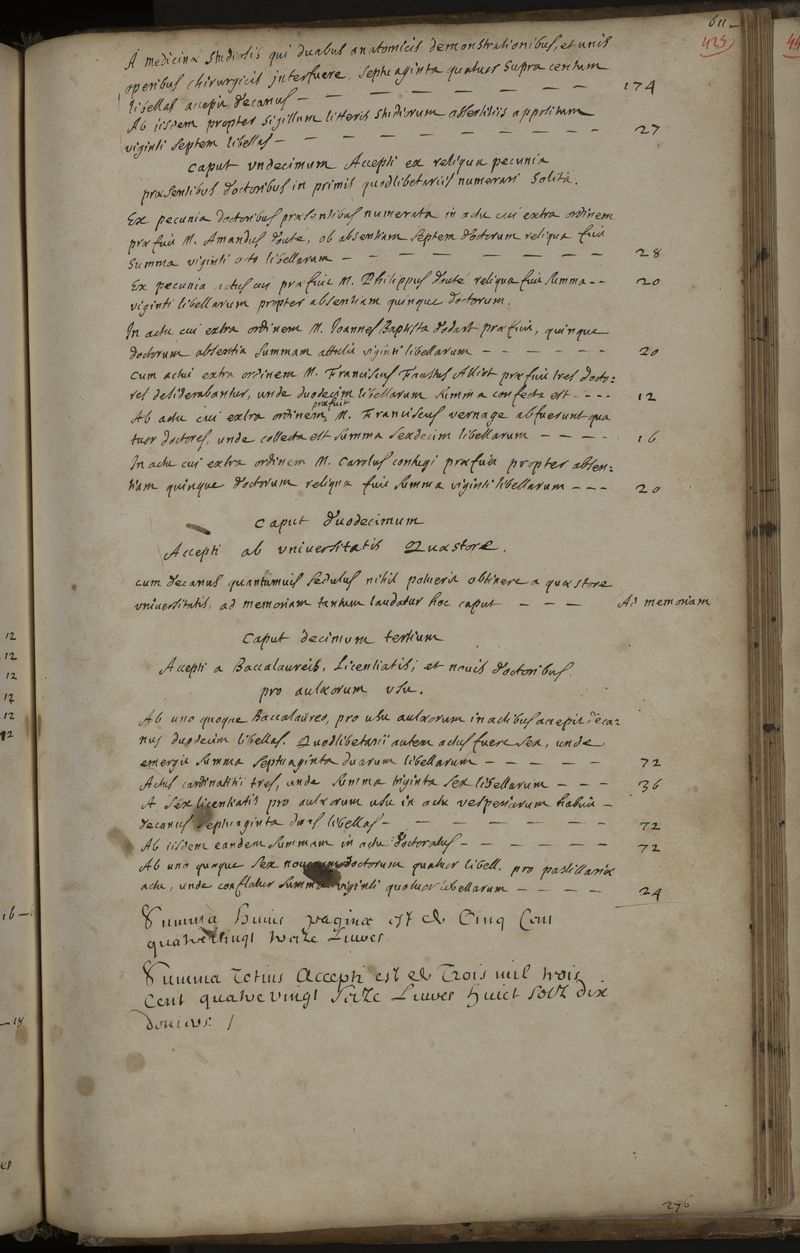 611
425
A medicinæ studiosis qui duabus anatomicis demonstrationibus, et unis
operibus chirurgicis interfuere, septuaginta quatuor supra centum
libellas accepit decanus — 174
Ab iisdem propter sigillum litteris studiorum appositum
viginti septem libellas — 27
Caput undecimum Accepti ex reliqua pecunia
præsentibus doctoribus in primis quodlibetariis numerari solita.
Ex pecunia doctoribus præsentibus numerata in actu cui extra ordinem
præfuit M. Amandus douté, ob absentiam septem doctorum reliqua fuit
summa viginti octo libellarum — 28
Ex pecunia actus cui præfuit M. Philippus douté reliqua fuit summa -- 20
viginti libellarum propter absentiam quinque doctorum.
In actu cui extra ordinem M. Joannes Baptista dodart præfuit, quinque
doctorum absentia summam attulit viginti libellarum — 20
Cum actui extra ordinem M. Franciscus Faustus Alliot præfuit tres docto=
res desiderabantur, unde duodecim libellarum summa confecta est --- 12
præfuit
Ab actu cui extra ordinem M. Franciscus vernage abfuerunt qua
tuor doctores, unde collecta est summa sexdecim libellarum — 16
In actu cui extra ordinem M. Carolus contugi præfuit propter absen=
tiam quinque doctorum reliqua fuit summa viginti libellarum — 20
Caput duodecimum
Accepti ab universitatis Quæstore.
Cum decanus quantumvis sedulus nihil potuerit obtinere a quæstore
universitatis, ad memoriam tantum laudatur hoc caput — Ad memoriam
Caput decimum tertium
Accepti a Baccalaureis, Licentiatis, et novis doctoribus
pro aulæorum usu.
Ab uno quoque Baccalaureo, pro usu aulæorum in actibus accepit deca=
nus duodecim libellas. Quodlibetarii autem actus fuere sex, unde
emergit summa septuaginta duarum libellarum — 72
Actus cardinalitii tres, unde summa triginta sex libellarum — 36
A sex licentiatis pro aulæorum usu in actu vesperiarum habuit —
decanus septuaginta duas libellas — 72
Ab iisdem eandem summam in actu doctoratus — 72
Ab uno quoque sex novorum doctorum quatuor libell. pro pastillariæ
actu, unde conflatur summa viginti quatuor libellarum — 24
Summa huius paginæ est de Cinq Cent
quatrevingt treize Livres
Summa totius Accepti est de Trois mil trois
Cent quatre vingt seize Livres huict solz dix
deniers /
276
12
12
12
12
12
12
16 —
— 14